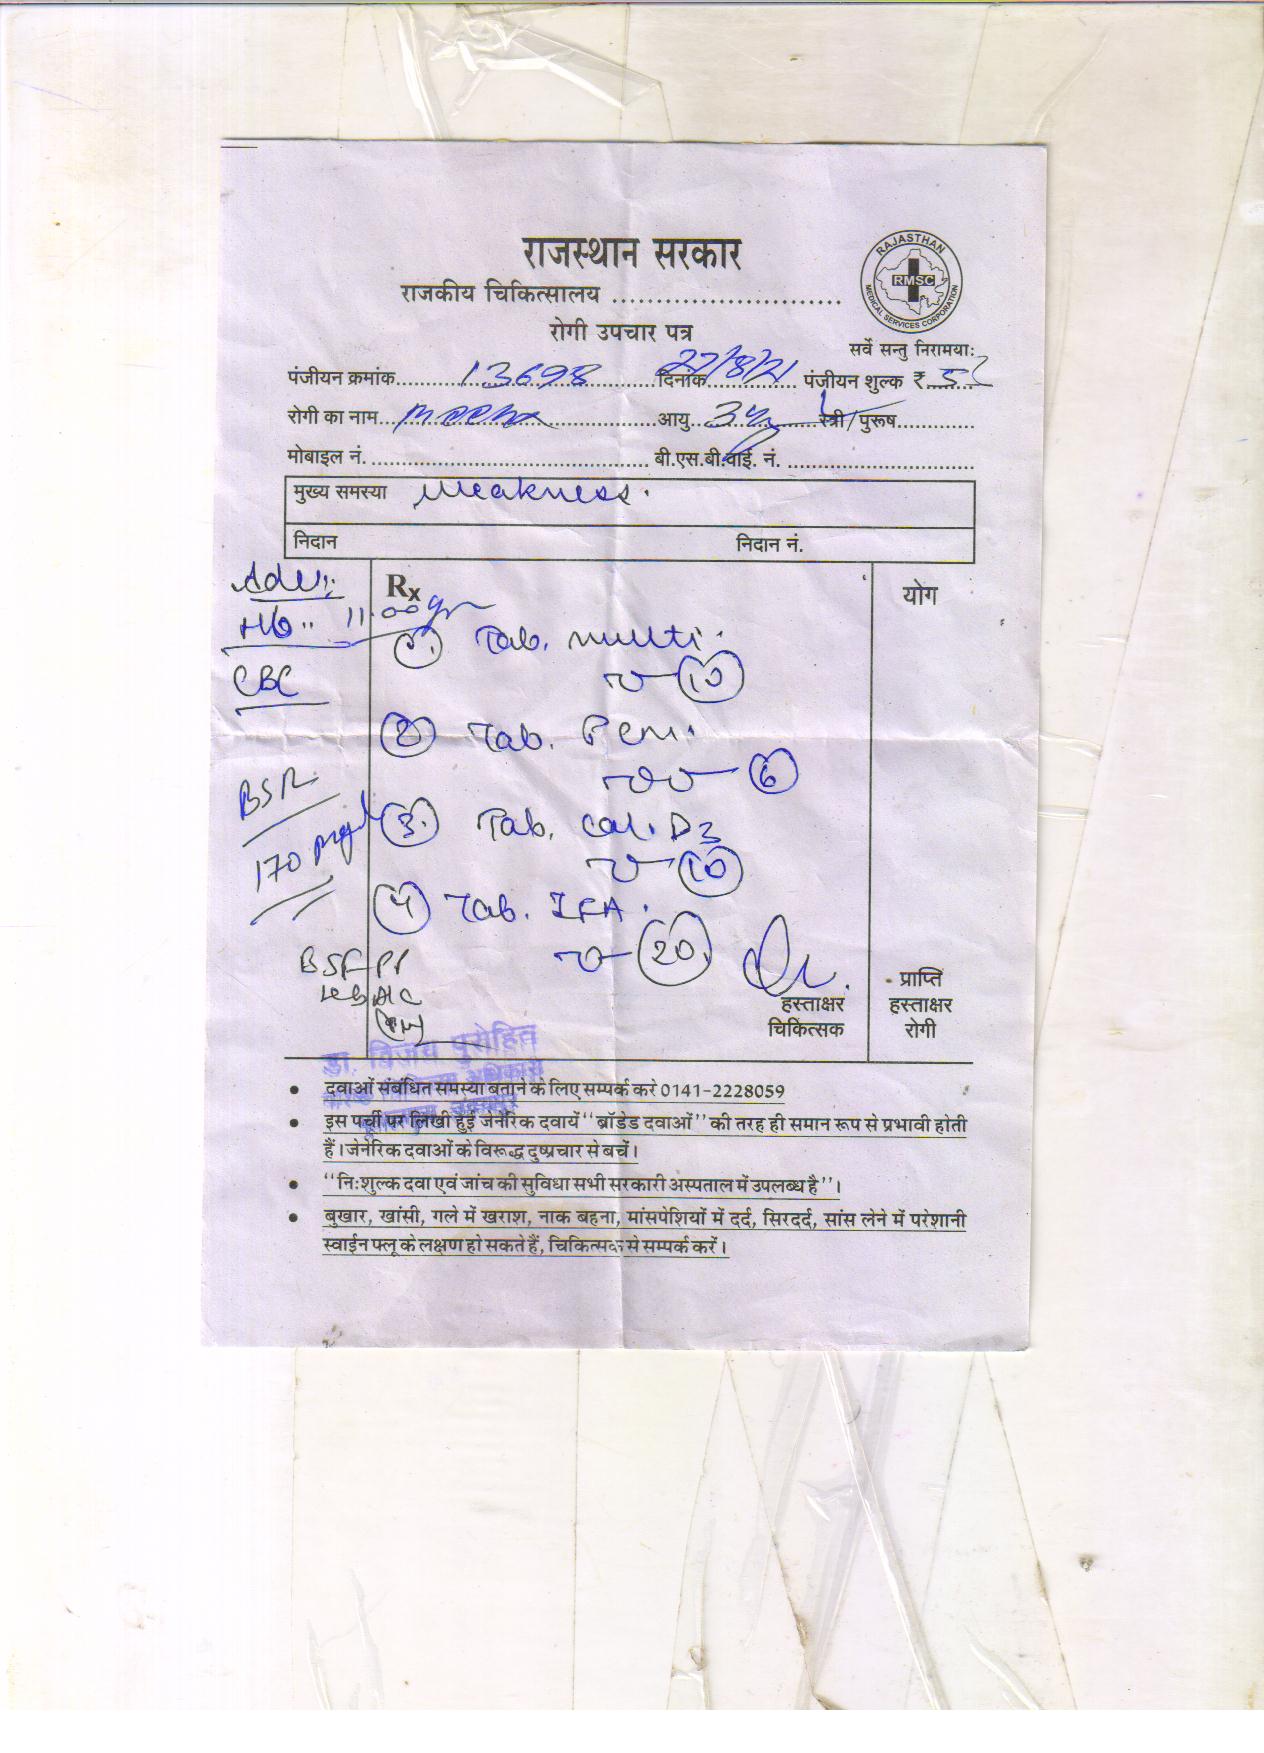 राजस्थान सरकार
राजकीय चिकित्सालय ..........................
रोगी उपचार पत्र
RAJASTHAN
RMSC
MEDICAL SERVICES CORPORATION
सर्वे सन्तु निरामयाः
पंजीयन क्रमांक 13698 दिनांक 27/8/21 पंजीयन शुल्क ₹ 5
रोगी का नाम आयु स्त्री / पुरूष
मोबाइल नं. बी.एस.बी.वाई. नं.
मुख्य समस्या Weakness.
निदान निदान नं.
Adv:
Rx योग
Hb 11.00 gm
1. Tab. multi.
10
CBC
2. Tab.
6
BSR
170 mg
3. Tab. cal. D3
10
4. Tab. IFA.
20.
हस्ताक्षर
चिकित्सक
प्राप्ति
हस्ताक्षर
रोगी
डा. विजय पुरोहित
• दवाओं संबंधित समस्या बताने के लिए सम्पर्क करे 0141-2228059
• इस पर्ची पर लिखी हुई जेनेरिक दवायें "ब्रॉडेड दवाओं" की तरह ही समान रूप से प्रभावी होती
हैं। जेनेरिक दवाओं के विरूद्ध दुष्प्रचार से बचें।
• "निःशुल्क दवा एवं जांच की सुविधा सभी सरकारी अस्पताल में उपलब्ध है"।
• बुखार, खांसी, गले में खराश, नाक बहना, मांसपेशियों में दर्द, सिरदर्द, सांस लेने में परेशानी
स्वाईन फ्लू के लक्षण हो सकते हैं, चिकित्सक से सम्पर्क करें।